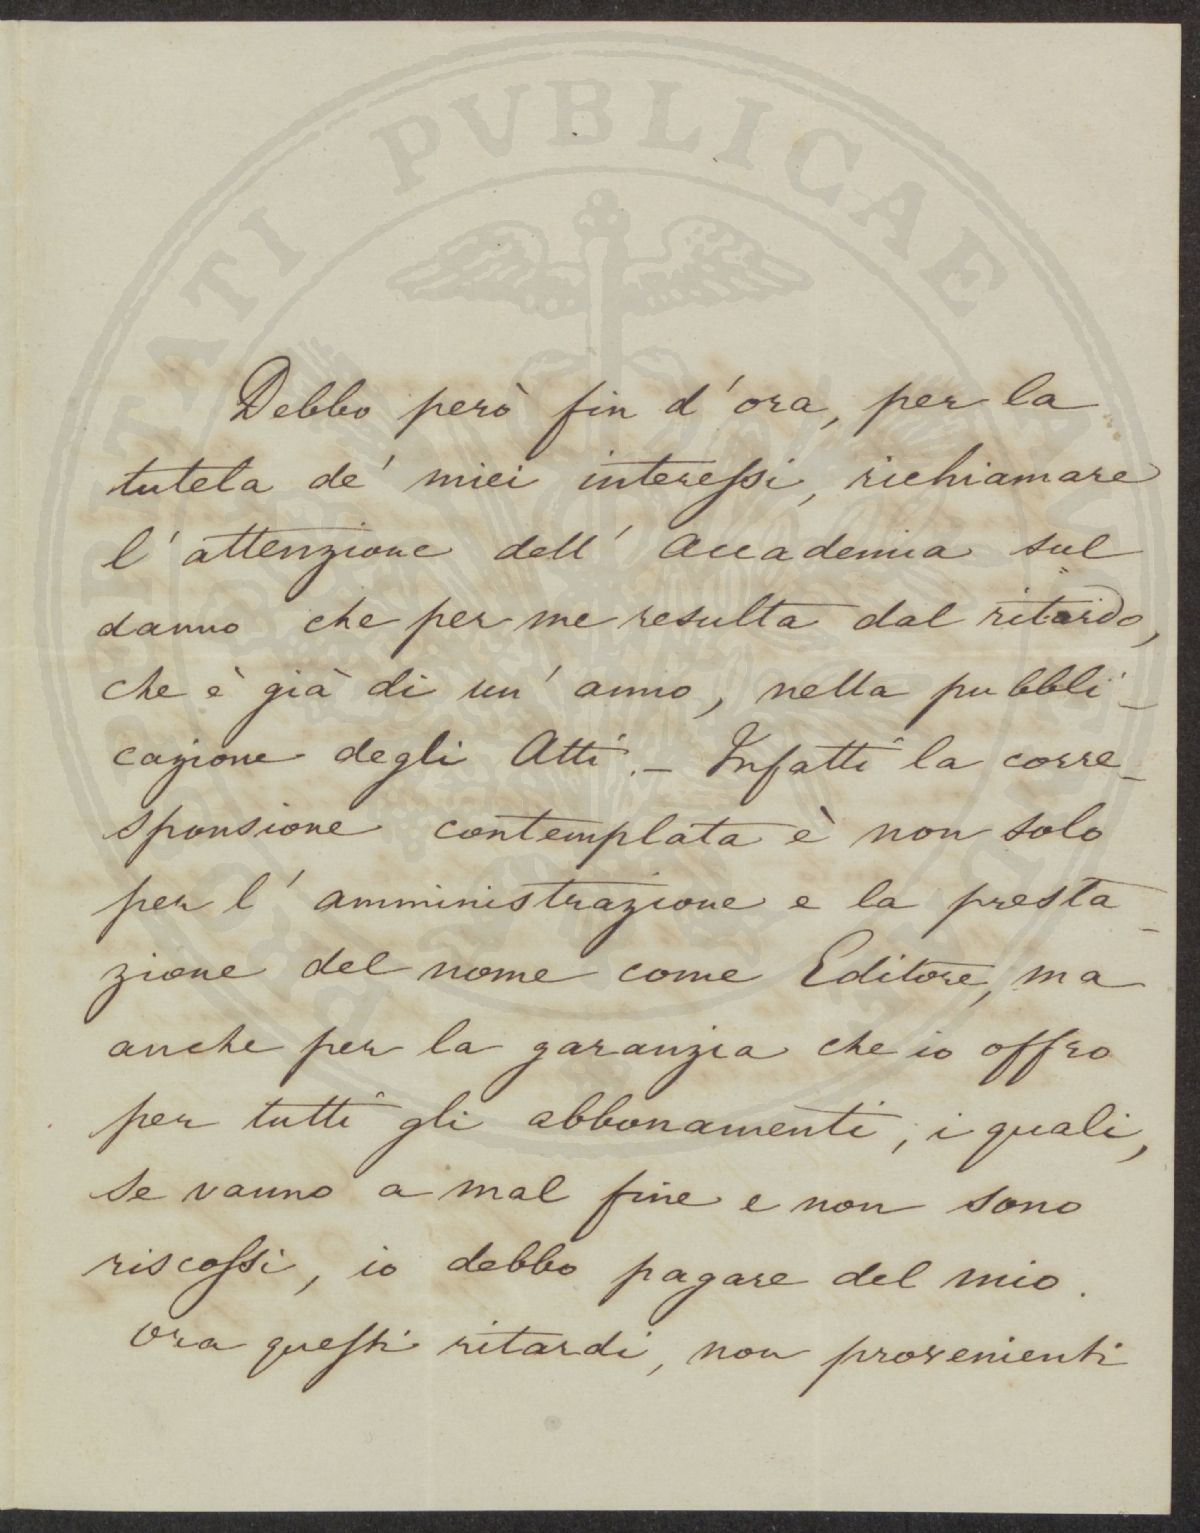 PROSPERITATI PVBLICAE AVGENDAE
Debbo però fin d'ora, per la
tutela de' miei interessi, richiamare
l'attenzione dell'Accademia sul
danno che per me resulta dal ritardo,
che è già di un'anno, nella pubbli-
cazione degli Atti. – Infatti la corre-
sponsione contemplata è non solo
per l'amministrazione e la presta-
zione del nome come Editore, ma
anche per la garanzia che io offro
per tutti gli abbonamenti, i quali,
se vanno a mal fine e non sono
riscossi, io debbo pagare del mio.
Ora questi ritardi, non provenienti